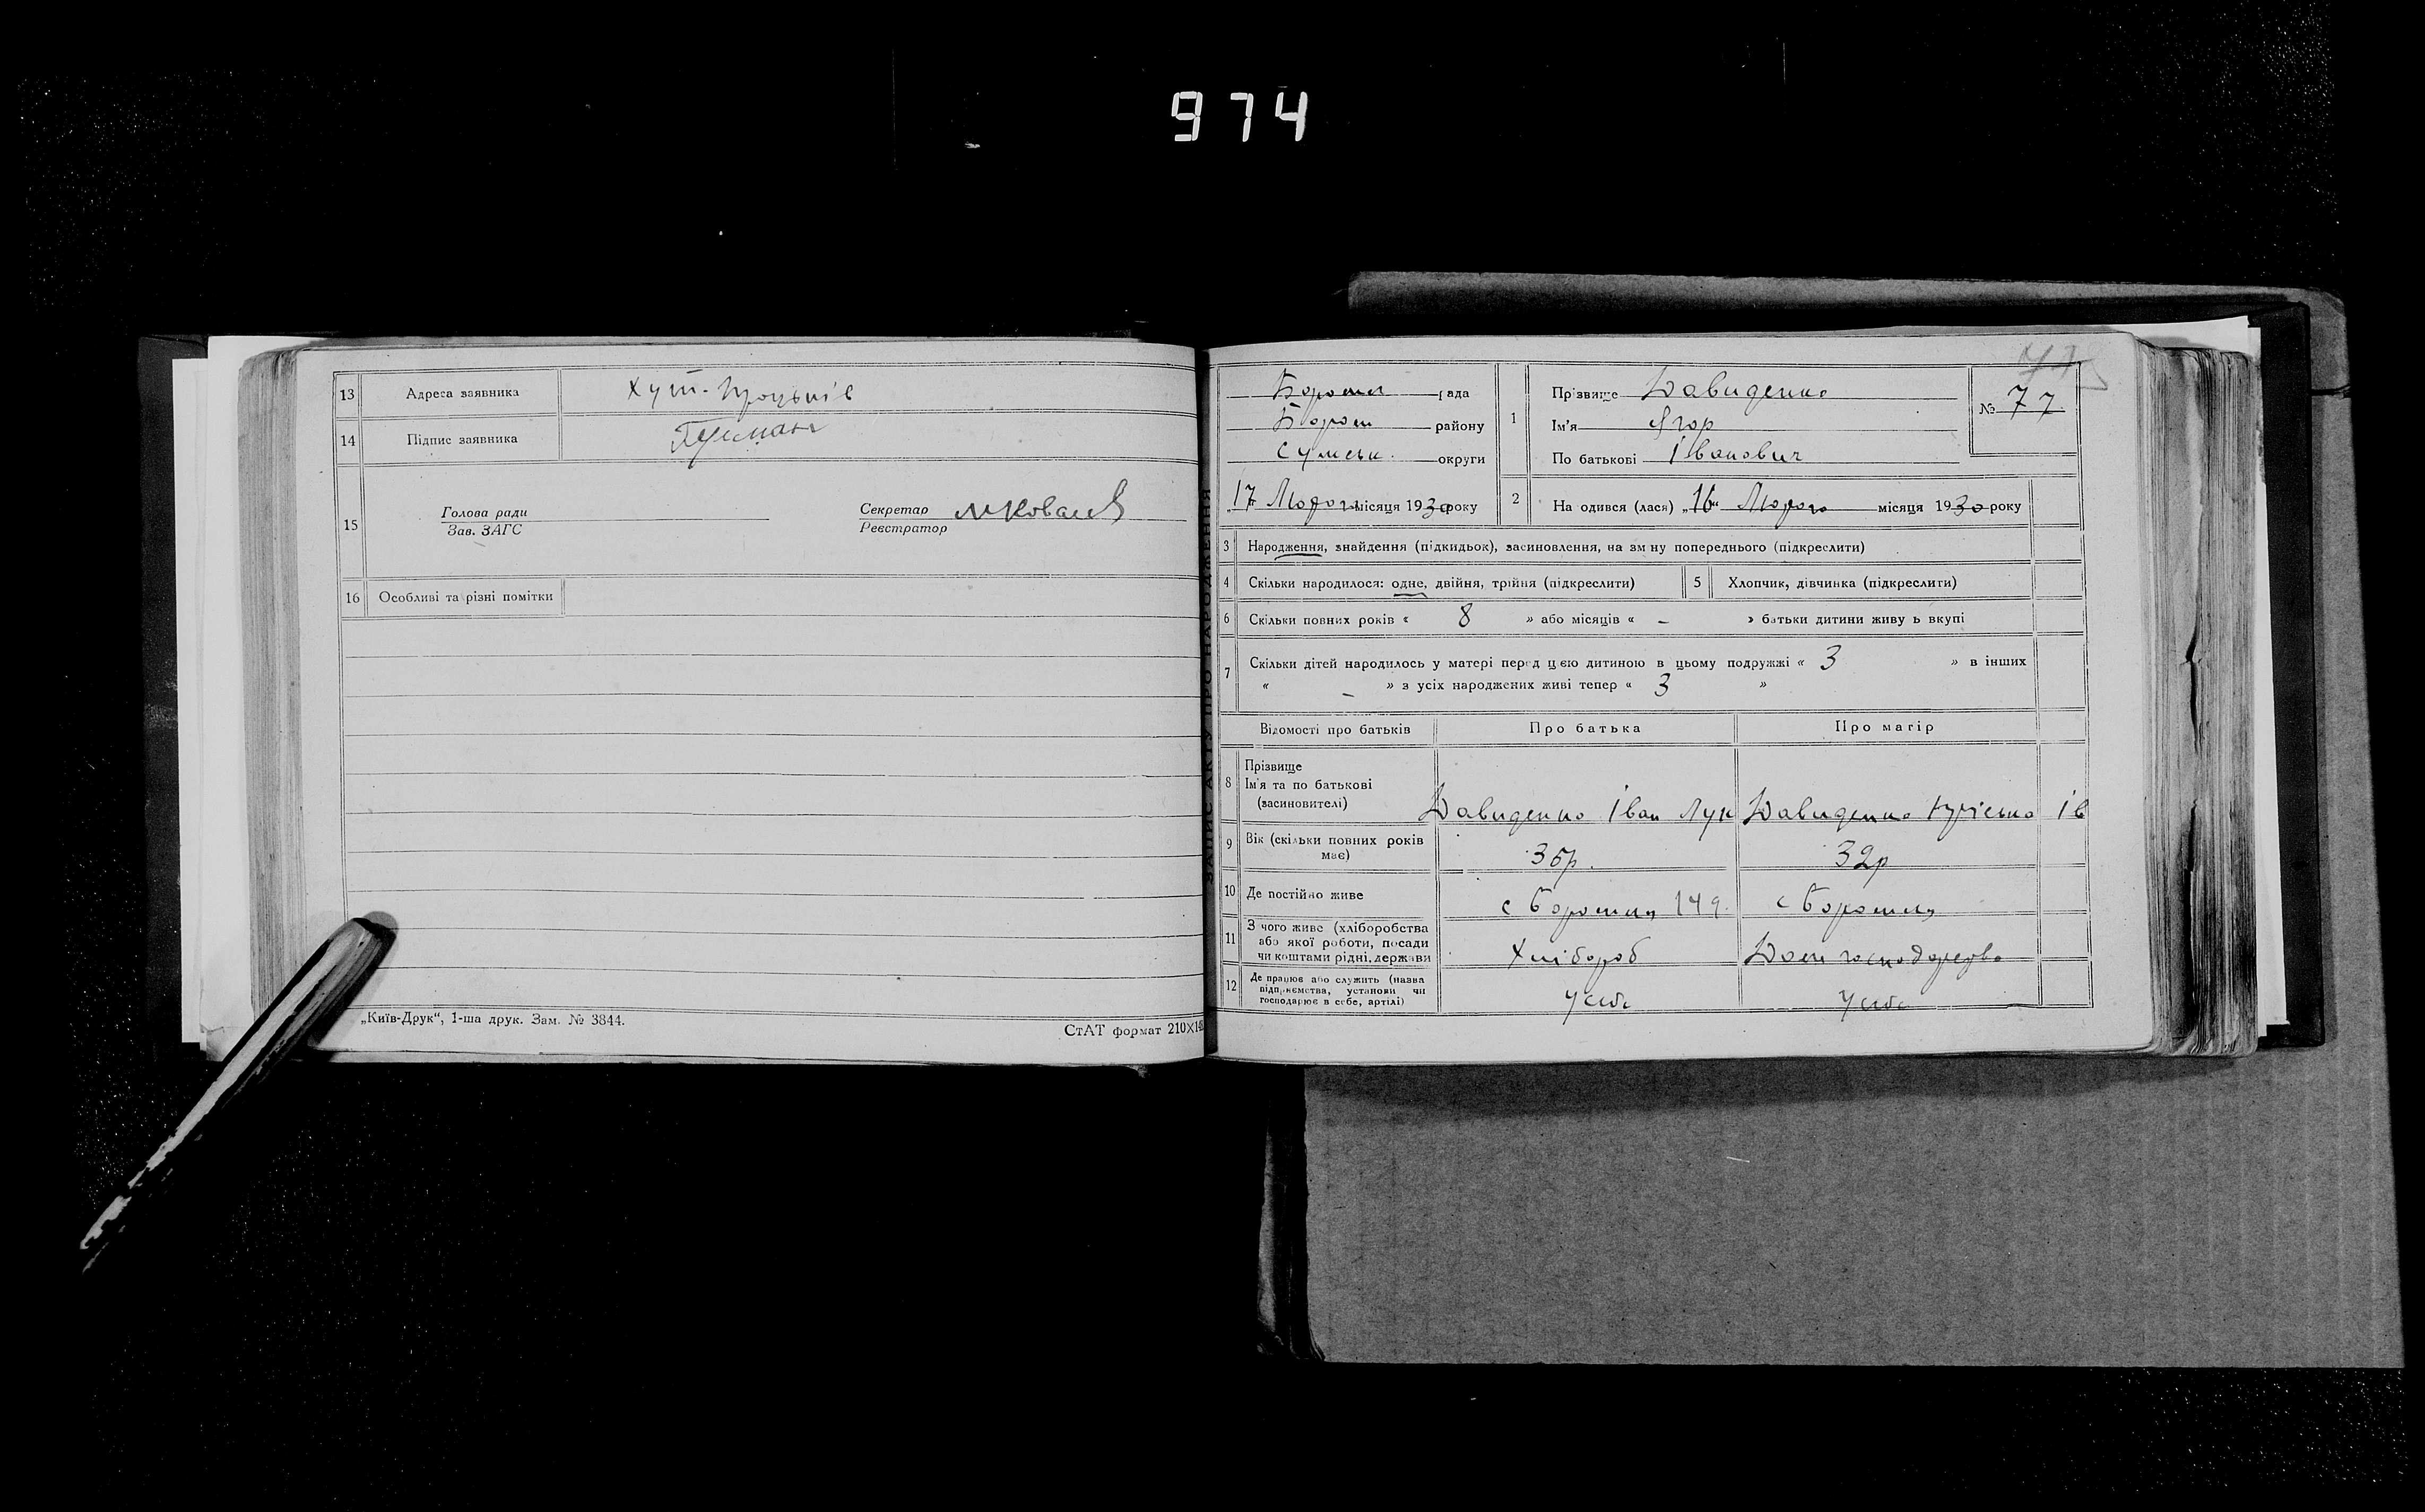 974
13 Адреса заявника Хут-Процьків
14 Підпис заявника
15 Голова ради
Зав. ЗАГС
Секретар МКовалев
Реєстратор
16 Особливі та різні помітки
„Київ-Друк“, 1-ша друк. Зам. № 3844.
СтАТ формат 210X14
ЗАПИС АКТУ ПРО НАРОДЖЕННЯ
Боромл рада
Бором району
Сумськ. округи
17 Лютого місяця 1930 року
1 Прізвище Давиденко
Ім'я Ягор
По батькові Іванович
№ 77
2 На одився (лася) „16“ Лютого місяця 1930 року
3 Народження, знайдення (підкидьок), засиновлення, на зм ну попереднього (підкреслити)
4 Скільки народилося: одне, двійня, трійня (підкреслити)
5 Хлопчик, дівчинка (підкреслити)
6 Скільки повних років « 8 » або місяців « – » батьки дитини живу ь вкупі
7 Скільки дітей народилось у матері перед цією дитиною в цьому подружжі « 3 » в інших
« – » з усіх народжених живі тепер « 3 »
Відомості про батьків Про батька Про матір
8 Прізвище
Ім'я та по батькові
(засиновителі)
Давиденко Іван Лук Давиденко Ів
9 Вік (скільки повних років
має)
35р. 32р
10 Де постійно живе с Боромля 149. с Боромля
11 З чого живе (хліборобства
або якої роботи, посади
чи коштами рідні, держави
Хлібороб Дом господарство
12 Де працює або служить (назва
підприємства, установи чи
господарює в себе, артілі)
У себе У себе